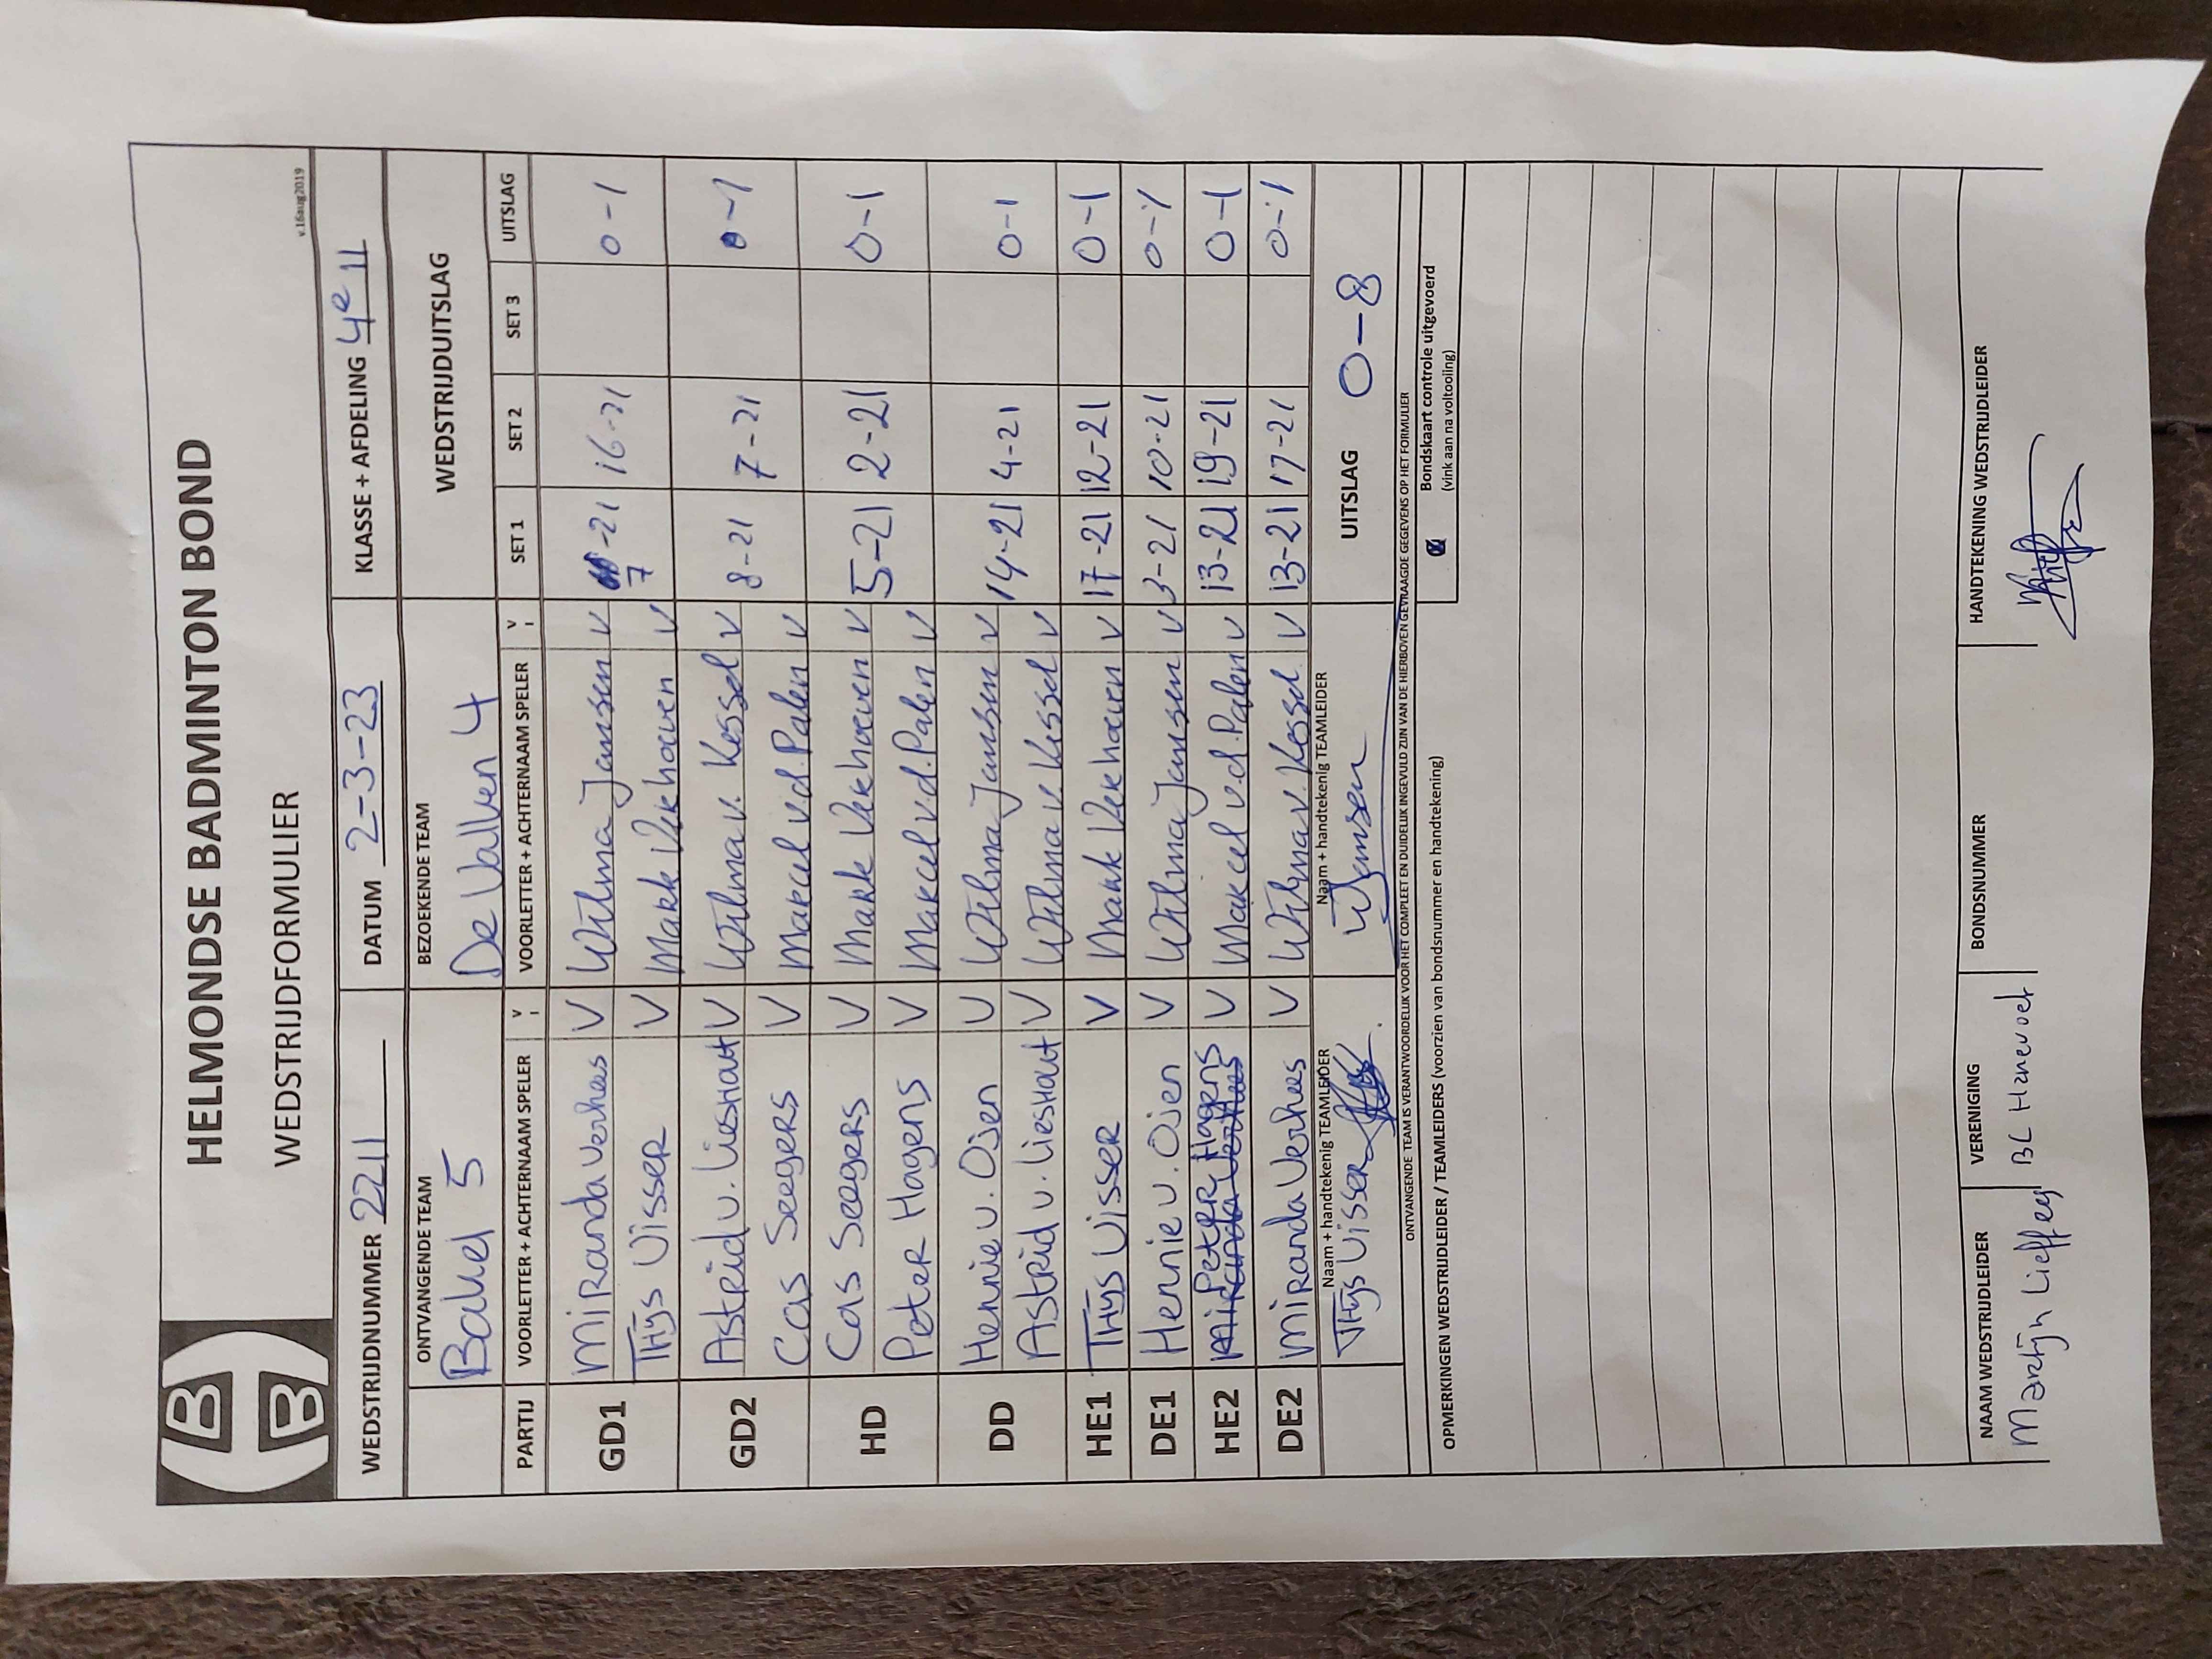 HELMONDSE BADMINTON BOND
WEDSTRIJDFORMULIER
v.16aug2019
WEDSTRIJDNUMMER 2211 DATUM 2-3-23 KLASSE + AFDELING 4e 11
ONTVANGENDE TEAM BEZOEKENDE TEAM WEDSTRIJDUITSLAG
Bakel 5 De Valken 4
PARTIJ VOORLETTER + ACHTERNAAM SPELER V VOORLETTER + ACHTERNAAM SPELER V SET 1 SET 2 SET 3 UITSLAG
GD1 Miranda Verhees V Wilma Janssen V 7-21 16-21 0-1
Thijs Visser V Mark Verhoeven V
GD2 Astrid v. Lieshout V Wilma v. Kessel V 8-21 7-21 0-1
Cas Seegers V Marcel v.d. Palen V
HD Cas Seegers V Mark Verhoeven V 5-21 2-21 0-1
Peter Hagens V Marcel v.d. Palen V
DD Hennie v. Osen V Wilma Janssen V 14-21 4-21 0-1
Astrid v. Lieshout V Wilma v. Kessel V
HE1 Thijs Visser V Mark Verhoeven V 17-21 12-21 0-1
DE1 Hennie v. Osen V Wilma Janssen V 3-21 10-21 0-1
HE2 Peter Hagens V Marcel v.d. Palen V 13-21 19-21 0-1
DE2 Miranda Verhees V Wilma v. Kessel V 13-21 17-21 0-1
Naam + handtekenig TEAMLEIDER Naam + handtekenig TEAMLEIDER UITSLAG 0-8
Thijs Visser WJansen
ONTVANGENDE TEAM IS VERANTWOORDELIJK VOOR HET COMPLEET EN DUIDELIJK INGEVULD ZIJN VAN DE HIERBOVEN GEVRAAGDE GEGEVENS OP HET FORMULIER
OPMERKINGEN WEDSTRIJDLEIDER / TEAMLEIDERS (voorzien van bondsnummer en handtekening) Bondskaart controle uitgevoerd
(vink aan na voltooiing)
NAAM WEDSTRIJDLEIDER VERENIGING BONDSNUMMER HANDTEKENING WEDSTRIJDLEIDER
Martijn BL Hanevoet